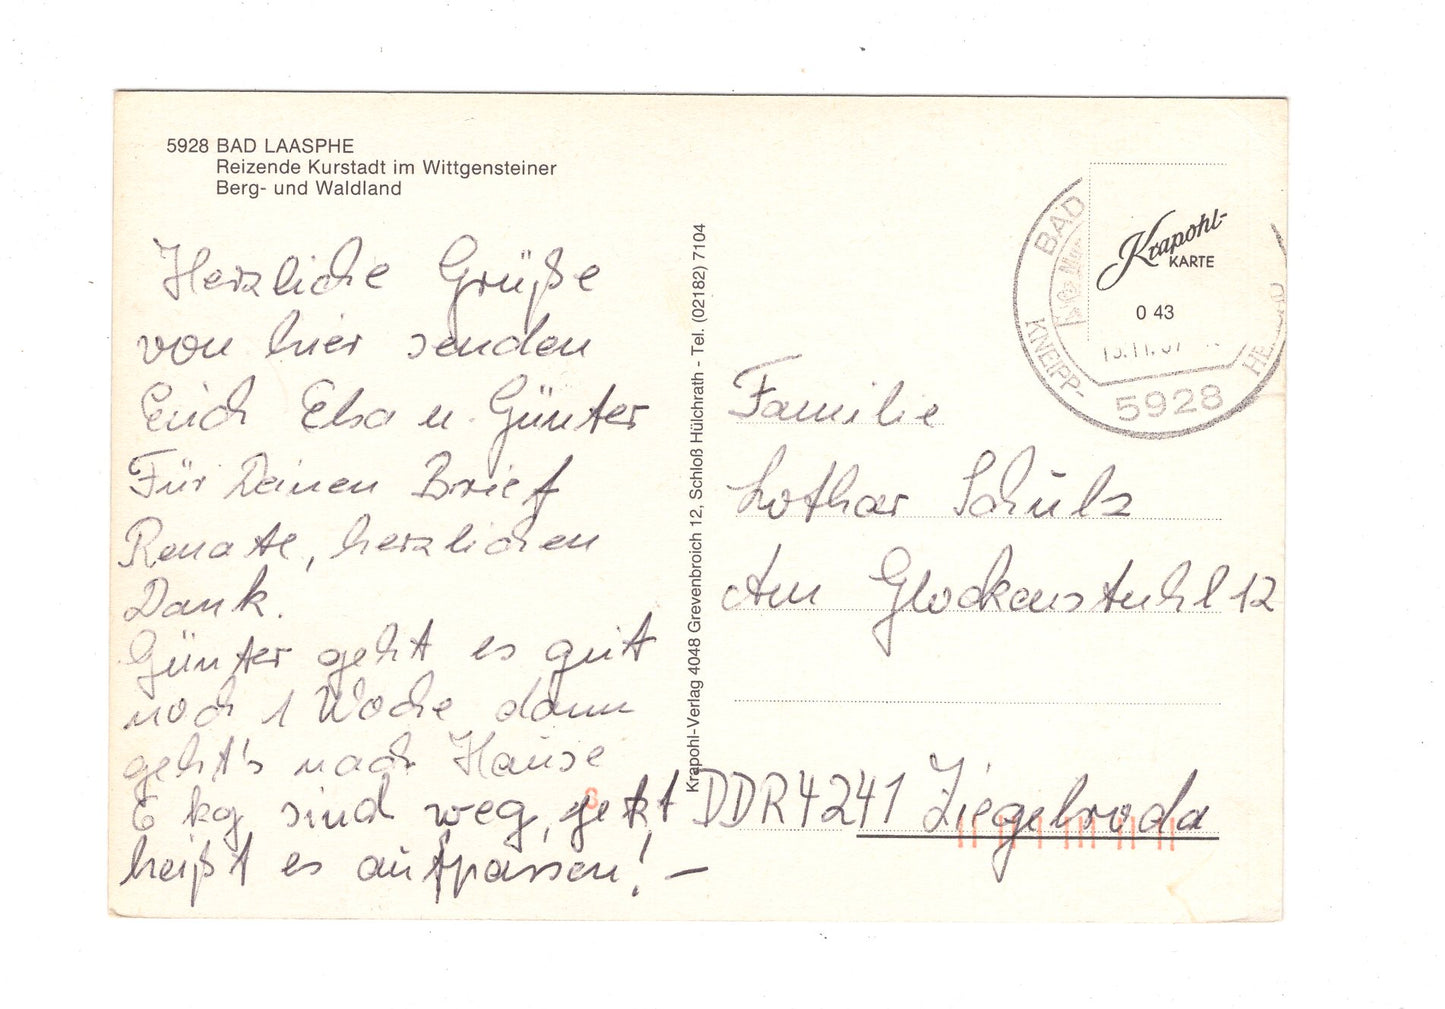 5928 BAD LAASPHE
Reizende Kurstadt im Wittgensteiner
Berg- und Waldland
Herzliche Grüße
von hier senden
Erich Elsa u. Günter
Für Deinen Brief
Renate, herzlichen
Dank.
Günter geht es gut
noch 1 Woche dann
geht's nach Hause
6 kg sind weg, jetzt
heißt es aufpassen! —
Krapohl-Verlag 4048 Grevenbroich 12, Schloß Hülchrath - Tel. (02182) 7104
BAD
KNEIPP-
5928
Krapohl-
KARTE
0 43
Familie
Lothar Schulz
Am Glockenstuhl 12
DDR 4241 Ziegelroda